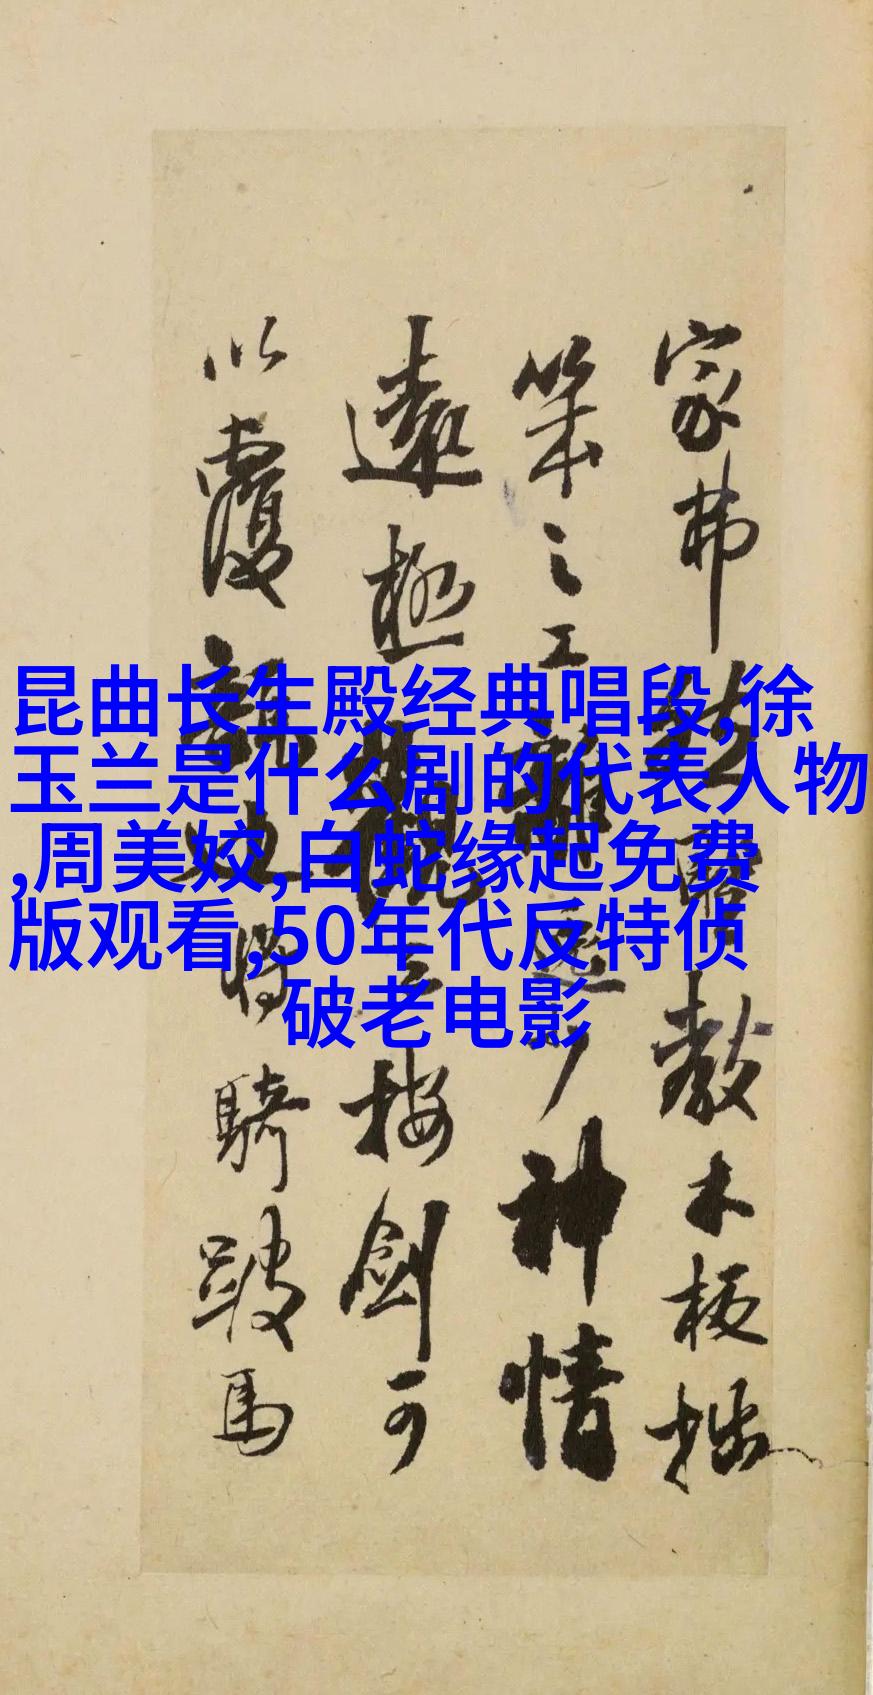 昆曲长生殿经典唱段,徐
玉兰是什么剧的代表人物
,周美姣,白蛇缘起免费
版观看,50年代反特侦
破老电影
家弗
教木板拙
筆之工
神情
遠極
按劍可
以覆
騎踱馬